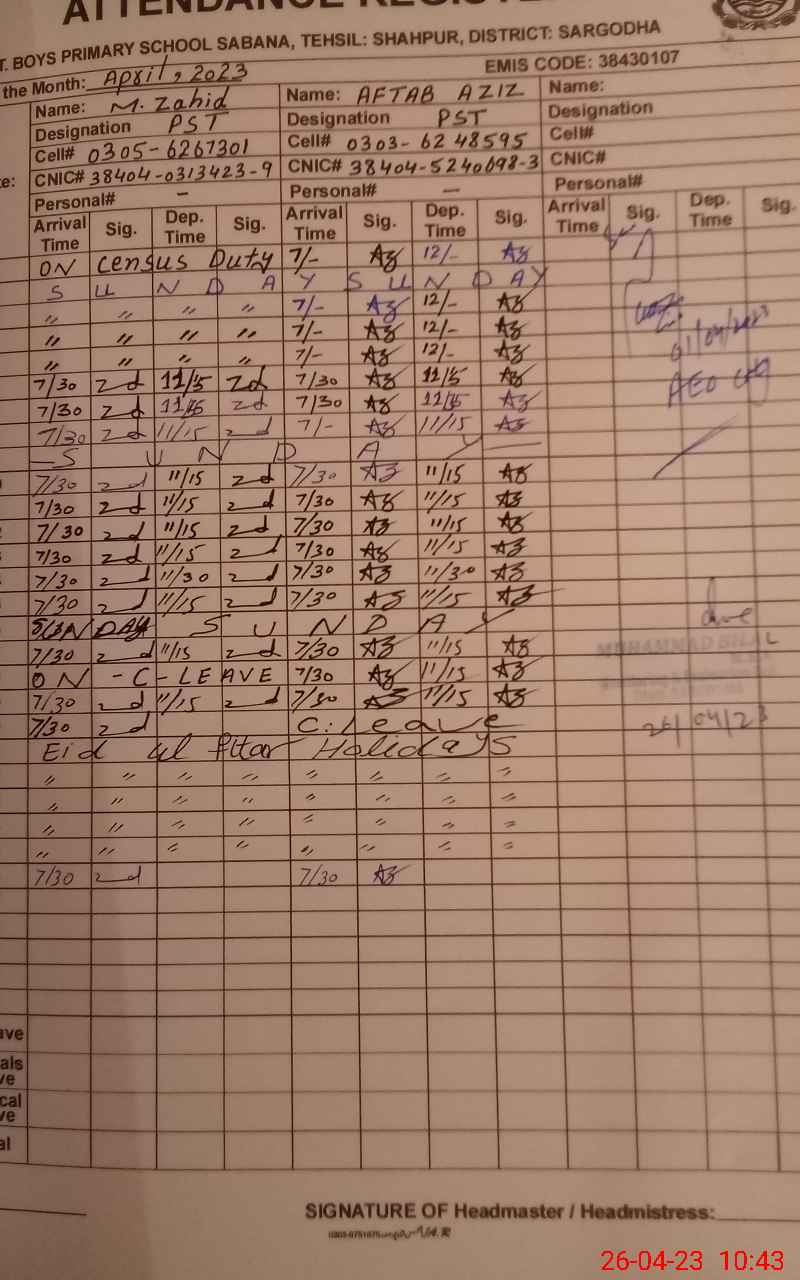 ATTENDANCE REGISTE
T. BOYS PRIMARY SCHOOL SABANA, TEHSIL: SHAHPUR, DISTRICT: SARGODHA
the Month: April, 2023 EMIS CODE: 38430107
Name: M. Zahid Name: AFTAB AZIZ Name:
Designation PST Designation PST Designation
Cell# 0305-6267301 Cell# 0303-6248595 Cell#
te: CNIC# 38404-0313423-9 CNIC# 38404-5240698-3 CNIC#
Personal# - Personal# - Personal#
Arrival Time Sig. Dep. Time Sig. Arrival Time Sig. Dep. Time Sig. Arrival Time Sig. Dep. Time Sig.
ON Census Duty 7/- Az 12/- Az
S U N D A Y S U N D A Y
〃 〃 〃 〃 7/- Az 12/- Az
〃 〃 〃 〃 7/- Az 12/- Az 01/04/2023
〃 〃 〃 〃 7/- Az 12/- Az
7/30 Zd 11/15 Zd 7/30 Az 11/15 Az AEO
7/30 Zd 11/15 Zd 7/30 Az 11/15 Az
7/30 Zd 11/15 Zd 7/- Az 11/15 Az
S U N D A Y
7/30 Zd 11/15 Zd 7/30 Az 11/15 Az
7/30 Zd 11/15 Zd 7/30 Az 11/15 Az
7/30 Zd 11/15 Zd 7/30 Az 11/15 Az
7/30 Zd 11/15 Zd 7/30 Az 11/15 Az
7/30 Zd 11/30 Zd 7/30 Az 11/30 Az
7/30 Zd 11/15 Zd 7/30 Az 11/15 Az
SUNDAY S U N D A Y
7/30 Zd 11/15 Zd 7/30 Az 11/15 Az MUHAMMAD BILAL
ON -C-LEAVE 7/30 Az 11/15 Az
7/30 Zd 11/15 Zd 7/30 Az 11/15 Az
7/30 Zd C.Leave 26/04/23
Eid ul fttar Holidays
〃 〃 〃 〃 〃 〃 〃 〃
〃 〃 〃 〃 〃 〃 〃 〃
〃 〃 〃 〃 〃 〃 〃 〃
〃 〃 〃 〃 〃 〃 〃 〃
7/30 Zd 7/30 Az
ave
als
ve
cal
ve
al
SIGNATURE OF Headmaster / Headmistress:
26-04-23 10:43